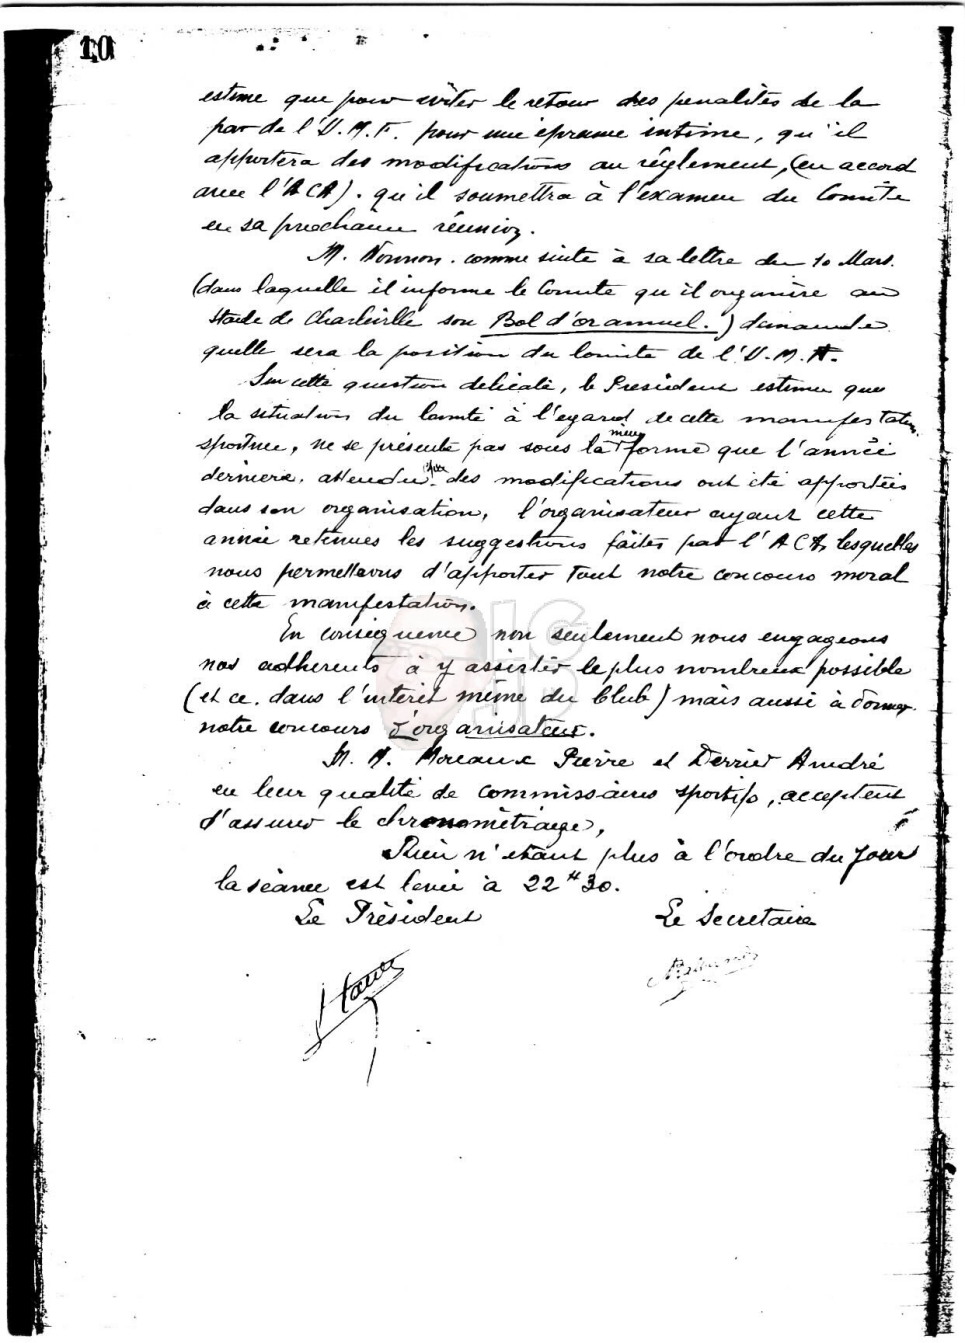 10
estime que pour eviter le retour des penalités de la
par de l'U.M.F. pour une épreuve intime, qu'il
apportera des modifications au règlement, (en accord
avec l'ACA). qu'il soumettra à l'examen du Comité
en sa prochaine réunion.
M. Nonnon. comme suite à sa lettre du 10 Mars.
(dans laquelle il informe le Comité qu'il organise au
Stade de Charleville son Bol d'or annuel.) demande
quelle sera la position du Comité de l'U.M.A.
Sur cette question delicate, le President estime que
la situation du Comité à l'égard de cette manifestation
sportive, ne se présente pas sous la meme forme que l'année
derniere, attendu que des modifications ont été apportées
dans son organisation, l'organisateur ayant cette
année retenues les suggestions faites par l'ACA, lesquelles
nous permettons d'apporter tout notre concours moral
à cette manifestation.
En conséquence non seulement nous engageons
nos adherents à y assister le plus nombreux possible
(et ce, dans l'intérêt même du Club) mais aussi à donner
notre concours d'organisateur.
M. M. Moreaux Pierre et Derrier André
en leur qualité de commissaires sportifs, acceptent
d'assurer le chronomètrage,
Rien n'étant plus à l'ordre du Jour
la séance est levée à 22 H 30.
Le Président Le Secretaire